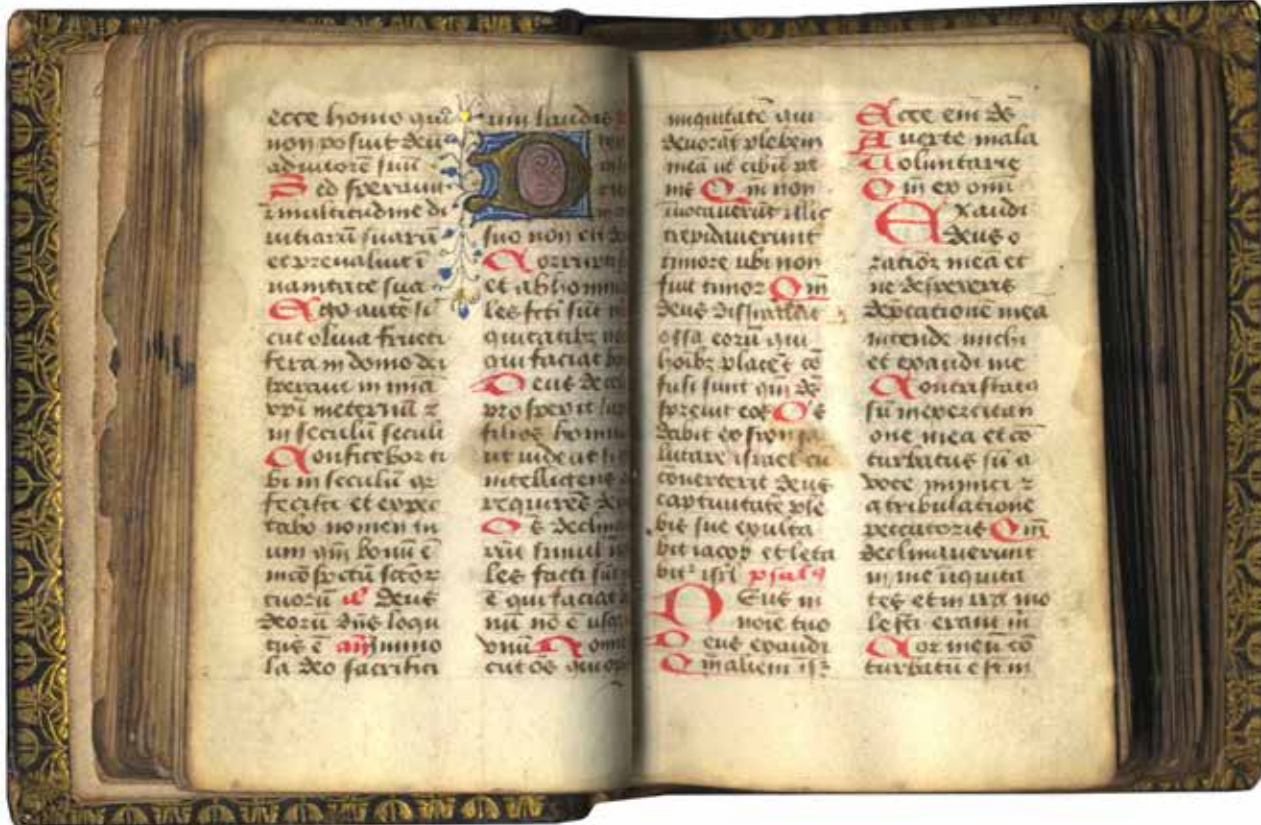 ecce homo qui
non posuit deū
adiutorē suū
Sed speravit
ī multitudine di
vitiarū suarū
et prevaluit ī
vanitate sua
Ego autē si
cut oliva fructi
fera in domo dei
speravi in mīa
in seculū seculi
Confitebor ti
bi in seculū qz
fecisti et expec
tabo nomen tu
um qm̄ bonū ē
tuorū Deus
deorū dn̄s locu
tus ē immo
la deo sacrifici
um laudis
D
suo non
Corrupti
et abhomina
les fcti sūt
qui faciat
Deus de
prosperit sup
filios homin
ut videat si
intelligens
requirēs
Oē declina
les facti sūt
ē qui faciat
nū nō ē usq
unū Nonne
iniquitatē qui
devorāt plebem
meā ut cibū
Qui non
invocaverūt illic
trepidaverunt
timore ubi non
fuit timor Qm̄
deus dissipat
ossa eorū qui
hoībz placēt cō
fusi sunt qm̄ dē
sprevit eos
dabit ex sion sa
lutare israel cū
converterit deus
captivitatē ple
bis sue exulta
bit iacob et leta
psal
Deus in
noīe tuo
Deus exaudi
Qm̄ alieni
Ecce em̄ dē
Averte mala
Voluntarie
Qm̄ ex omi
Exaudi
deus o
rationē mea et
ne despexeris
dep̄cationē mea
intende michi
et exaudi me
Contristatꝰ
sū in exercitati
one mea et cō
turbatus sū a
voce inimici z
a tribulatione
peccatoris Qm̄
declinaverunt
in me iniquita
tes et in ira mo
lesti erant m̄
Cor meū cō
turbatū ē ī m